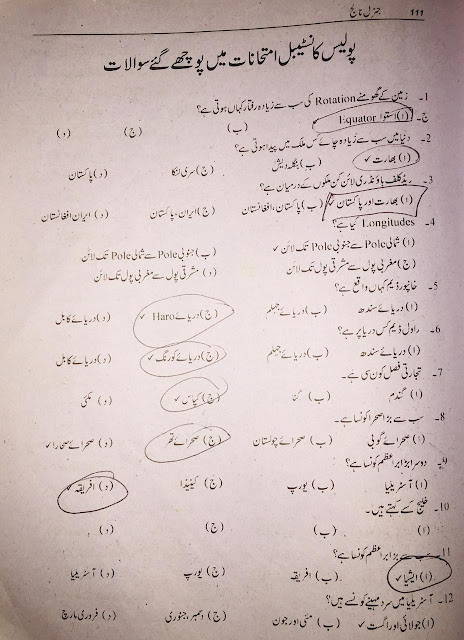 111 جنرل نالج
پولیس کانسٹیبل امتحانات میں پوچھے گئے سوالات
1۔ زمین کے گھومنے Rotation کی سب سے زیادہ رفتار کہاں ہوتی ہے؟
ج۔ (ا) استوا Equator ✓ (ب) (ج) (د)
2۔ دنیا میں سب سے زیادہ چائے کس ملک میں پیدا ہوتی ہے؟
(ا) بھارت ✓ (ب) بنگلہ دیش (ج) سری لنکا (د) پاکستان
3۔ ریڈ کلف باؤنڈری لائن کن ملکوں کے درمیان ہے؟
(ا) بھارت اور پاکستان ✓ (ب) پاکستان، افغانستان (ج) ایران، پاکستان (د) ایران افغانستان
4۔ Longitudes کیا ہے؟
(ا) شمالی Pole سے جنوبی Pole تک لائن ✓ (ب) جنوبی Pole سے شمالی Pole تک لائن
(ج) مغربی پول سے مشرقی پول تک لائن (د) مشرقی پول سے مغربی پول تک لائن
5۔ خانپور ڈیم کہاں واقع ہے؟
(ا) دریائے سندھ (ب) دریائے جہلم (ج) دریائے Haro ✓ (د) دریائے کابل
6۔ راول ڈیم کس دریا پر ہے؟
(ا) دریائے سندھ (ب) دریائے جہلم (ج) دریائے کورنگ ✓ (د) دریائے کابل
7۔ تجارتی فصل کون سی ہے۔
(ا) گندم (ب) گنا (ج) کپاس ✓ (د) مکئی
8۔ سب سے بڑا صحرا کونسا ہے؟
(ا) صحرائے گوبی (ب) صحرائے چولستان (ج) صحرائے تھر (د) صحرائے صحارا ✓
9۔ دوسرا بڑا براعظم کونسا ہے؟
(ا) آسٹریلیا (ب) یورپ (ج) کینیڈا (د) افریقہ ✓
10۔ خلیج کسے کہتے ہیں۔
(ا) (ب) (ج) (د)
11۔ سب سے بڑا براعظم کونسا ہے؟
(ا) ایشیا ✓ (ب) افریقہ (ج) یورپ (د) آسٹریلیا
12۔ آسٹریلیا میں سرد مہینے کونسے ہیں؟
(ا) جولائی اور اگست ✓ (ب) مئی اور جون (ج) دسمبر، جنوری (د) فروری مارچ